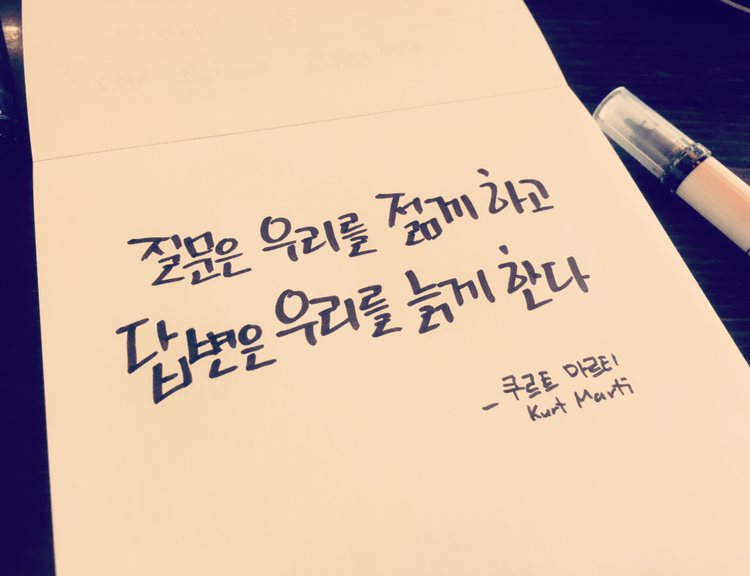 질문은 우리를 젊게 하고
답변은 우리를 늙게 한다
- 쿠르트 마르티
Kurt Marti